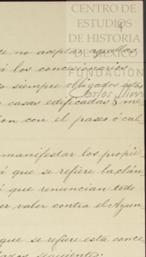 CENTRO DE
ESTUDIOS
DE HISTORIA
DE
FUNDACIÓN
ce no aceptar aquellos
á los concesionarios
o siempre obligados estos
casas edificadas, me
ion con el paseo ó cal
manifestar los propie
á que se refiere la cláu
á que renuncian todo
er valer contra el Ayun
que se refiere esta conce
siguientes: